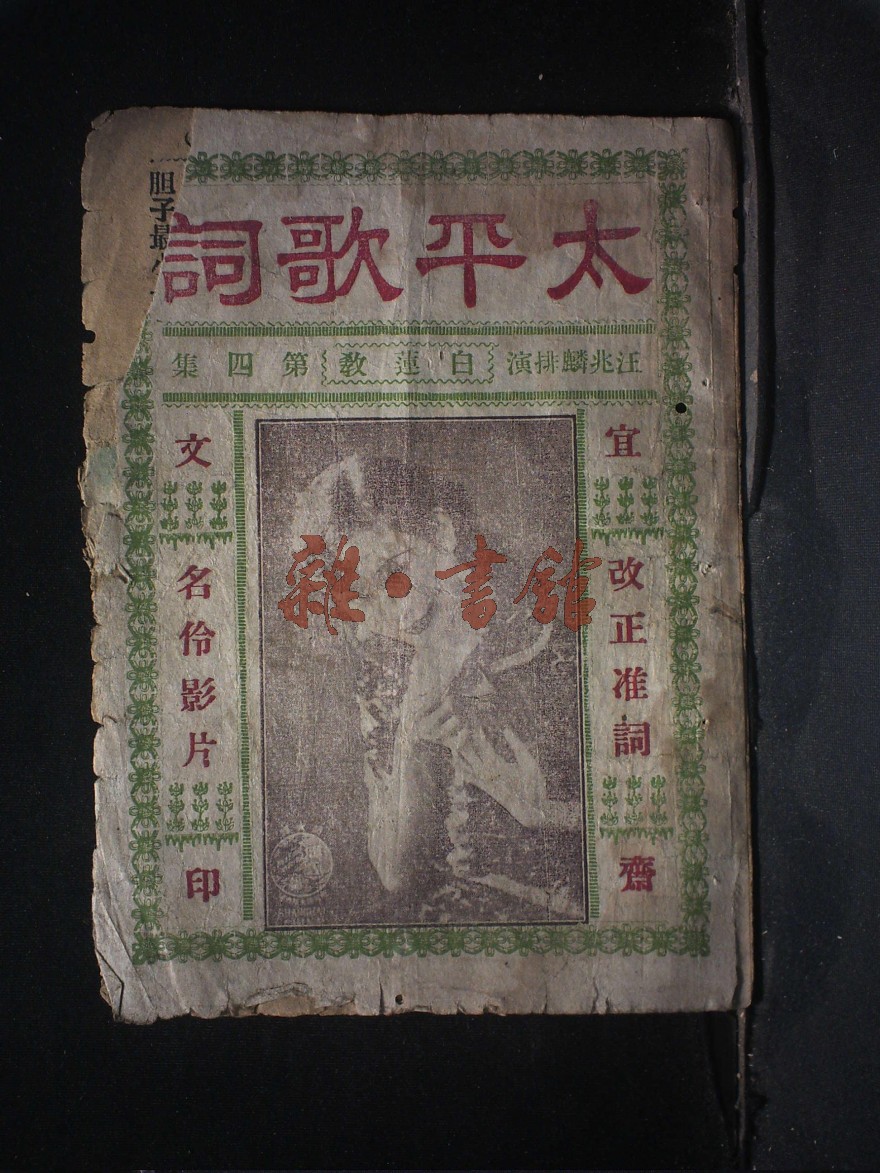 太平歌詞
汪兆麟排演 白蓮教 第四集
宜
改正准詞
齋
文
名伶影片
印
胆子最
雜·書館
SHANGHAI